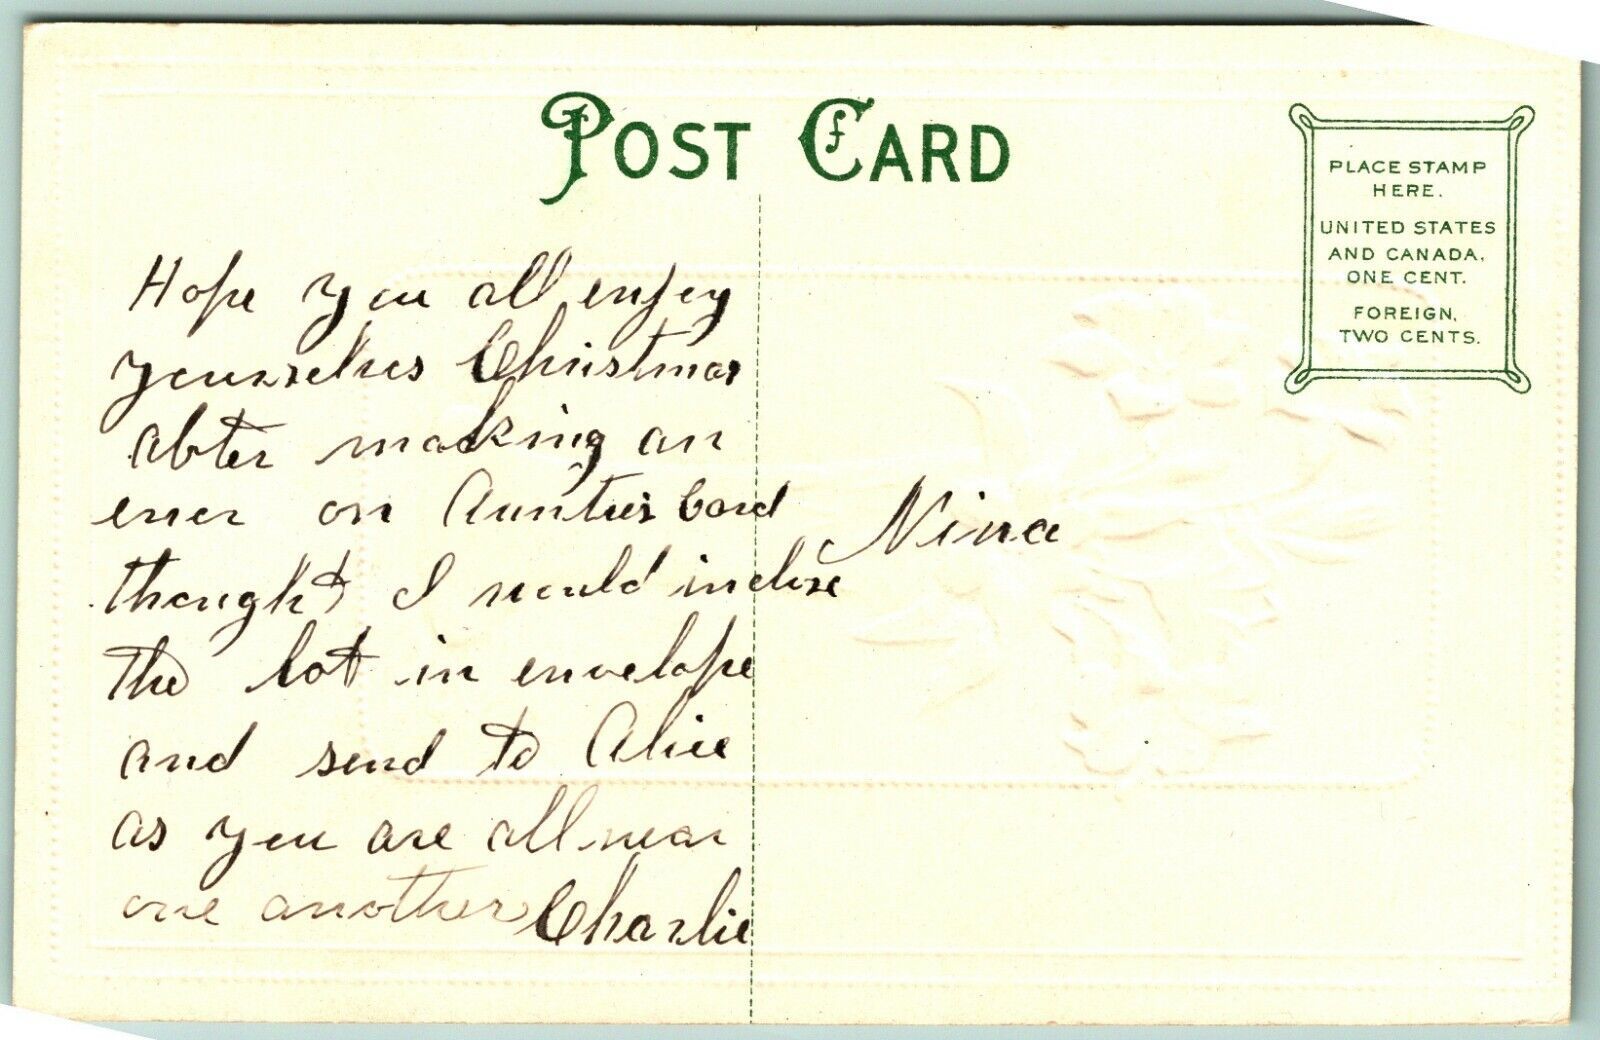 POST CARD
PLACE STAMP
HERE.
UNITED STATES
AND CANADA,
ONE CENT.
FOREIGN,
TWO CENTS.
Hope you all enjoy
yourselves Christmas
abter making an
error on Aunties Card
thought I would inclose
the lot in envelope
and send to Alice
as you are all near
one another Charlie
Nina